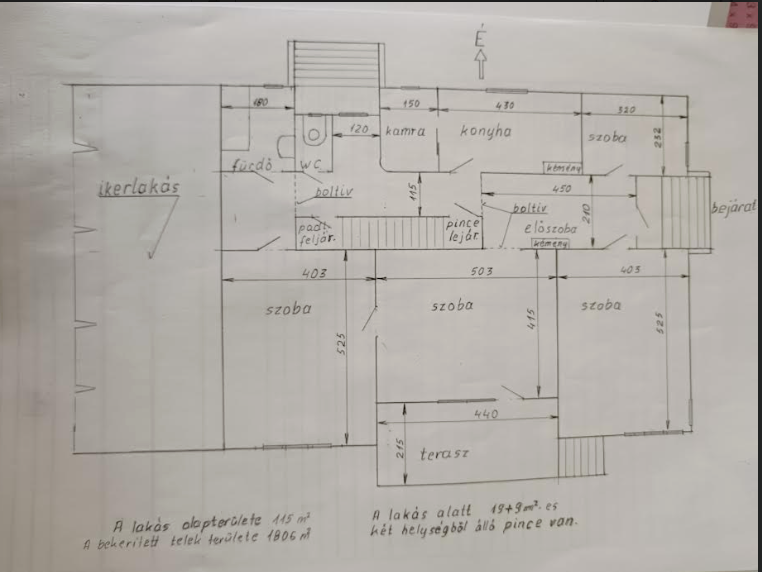 É
180
150
430
320
120
kamra
konyha
szoba
232
fürdő
WC
kémény
ikerlakás
boltív
115
450
210
boltív
bejárat
pad.
feljár.
pince
lejár.
előszoba
kémény
403
503
403
szoba
szoba
szoba
525
415
525
440
215
terasz
A lakás alapterülete 115 m²
A bekerített telek területe 1806 m²
A lakás alatt 19+9 m². es
két helységből álló pince van.